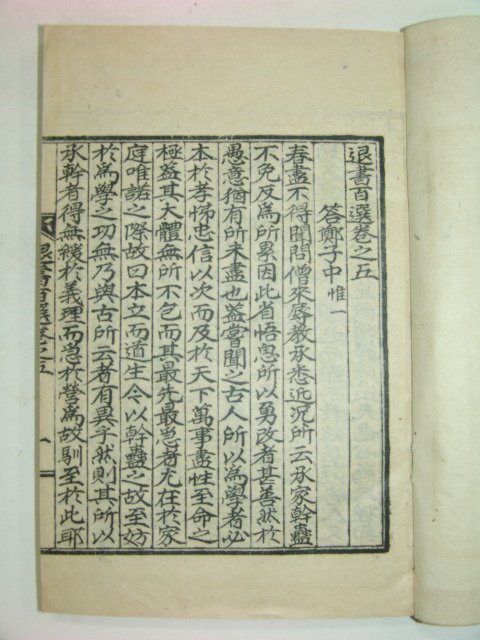 退書百選卷之五
答鄭子中 惟一
春盡不得聞問僧來辱敎承悉近況所云承家幹蠱
不免反爲所累因此省悟思所以勇改者甚善然於
愚意猶有所未盡也蓋嘗聞之古人所以爲學者必
本於孝悌忠信以次而及於天下萬事盡性至命之
極蓋其大體無所不包而其最先最急者尤在於家
庭唯諾之際故曰本立而道生今以幹蠱之故至妨
於爲學之功無乃與古所云者有異乎然則其所以
承幹者得無緩於義理而急於營爲故馴至於此耶
退書百選卷之五 一